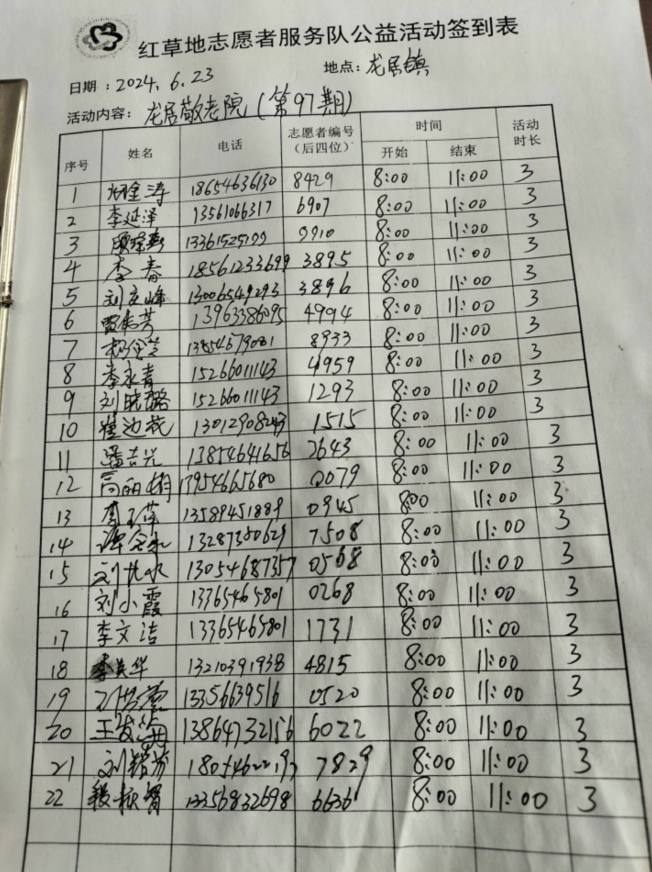 红草地志愿者服务队公益活动签到表
日期：2024.6.23 地点：龙居镇
活动内容：龙居敬老院（第97期）
序号 姓名 电话 志愿者编号（后四位） 时间 开始 结束 活动时长
1 18654636130 8429 8:00 11:00 3
2 李延泽 13561066317 6907 8:00 11:00 3
3 9910 8:00 11:00 3
4 李春 18561233699 3895 8:00 11:00 3
5 13006549293 3896 8:00 11:00 3
6 13963386095 4994 8:00 11:00 3
7 13854679081 8933 8:00 11:00 3
8 李永青 15266011143 4959 8:00 11:00 3
9 刘晓璐 15266011143 1293 8:00 11:00 3
10 1515 8:00 11:00 3
11 13854641656 2643 8:00 11:00 3
12 高丽娟 17954665680 0079 8:00 11:00 3
13 13589451889 0945 8:00 11:00 3
14 13287350629 7508 8:00 11:00 3
15 13054687357 0568 8:00 11:00 3
16 刘小霞 13365465801 0268 8:00 11:00 3
17 李文洁 13365465801 1731 8:00 11:00 3
18 李美华 13210391938 4815 8:00 11:00 3
19 13356639516 0520 8:00 11:00 3
20 13864732156 6022 8:00 11:00 3
21 7829 8:00 11:00 3
22 13356832698 6636 8:00 11:00 3